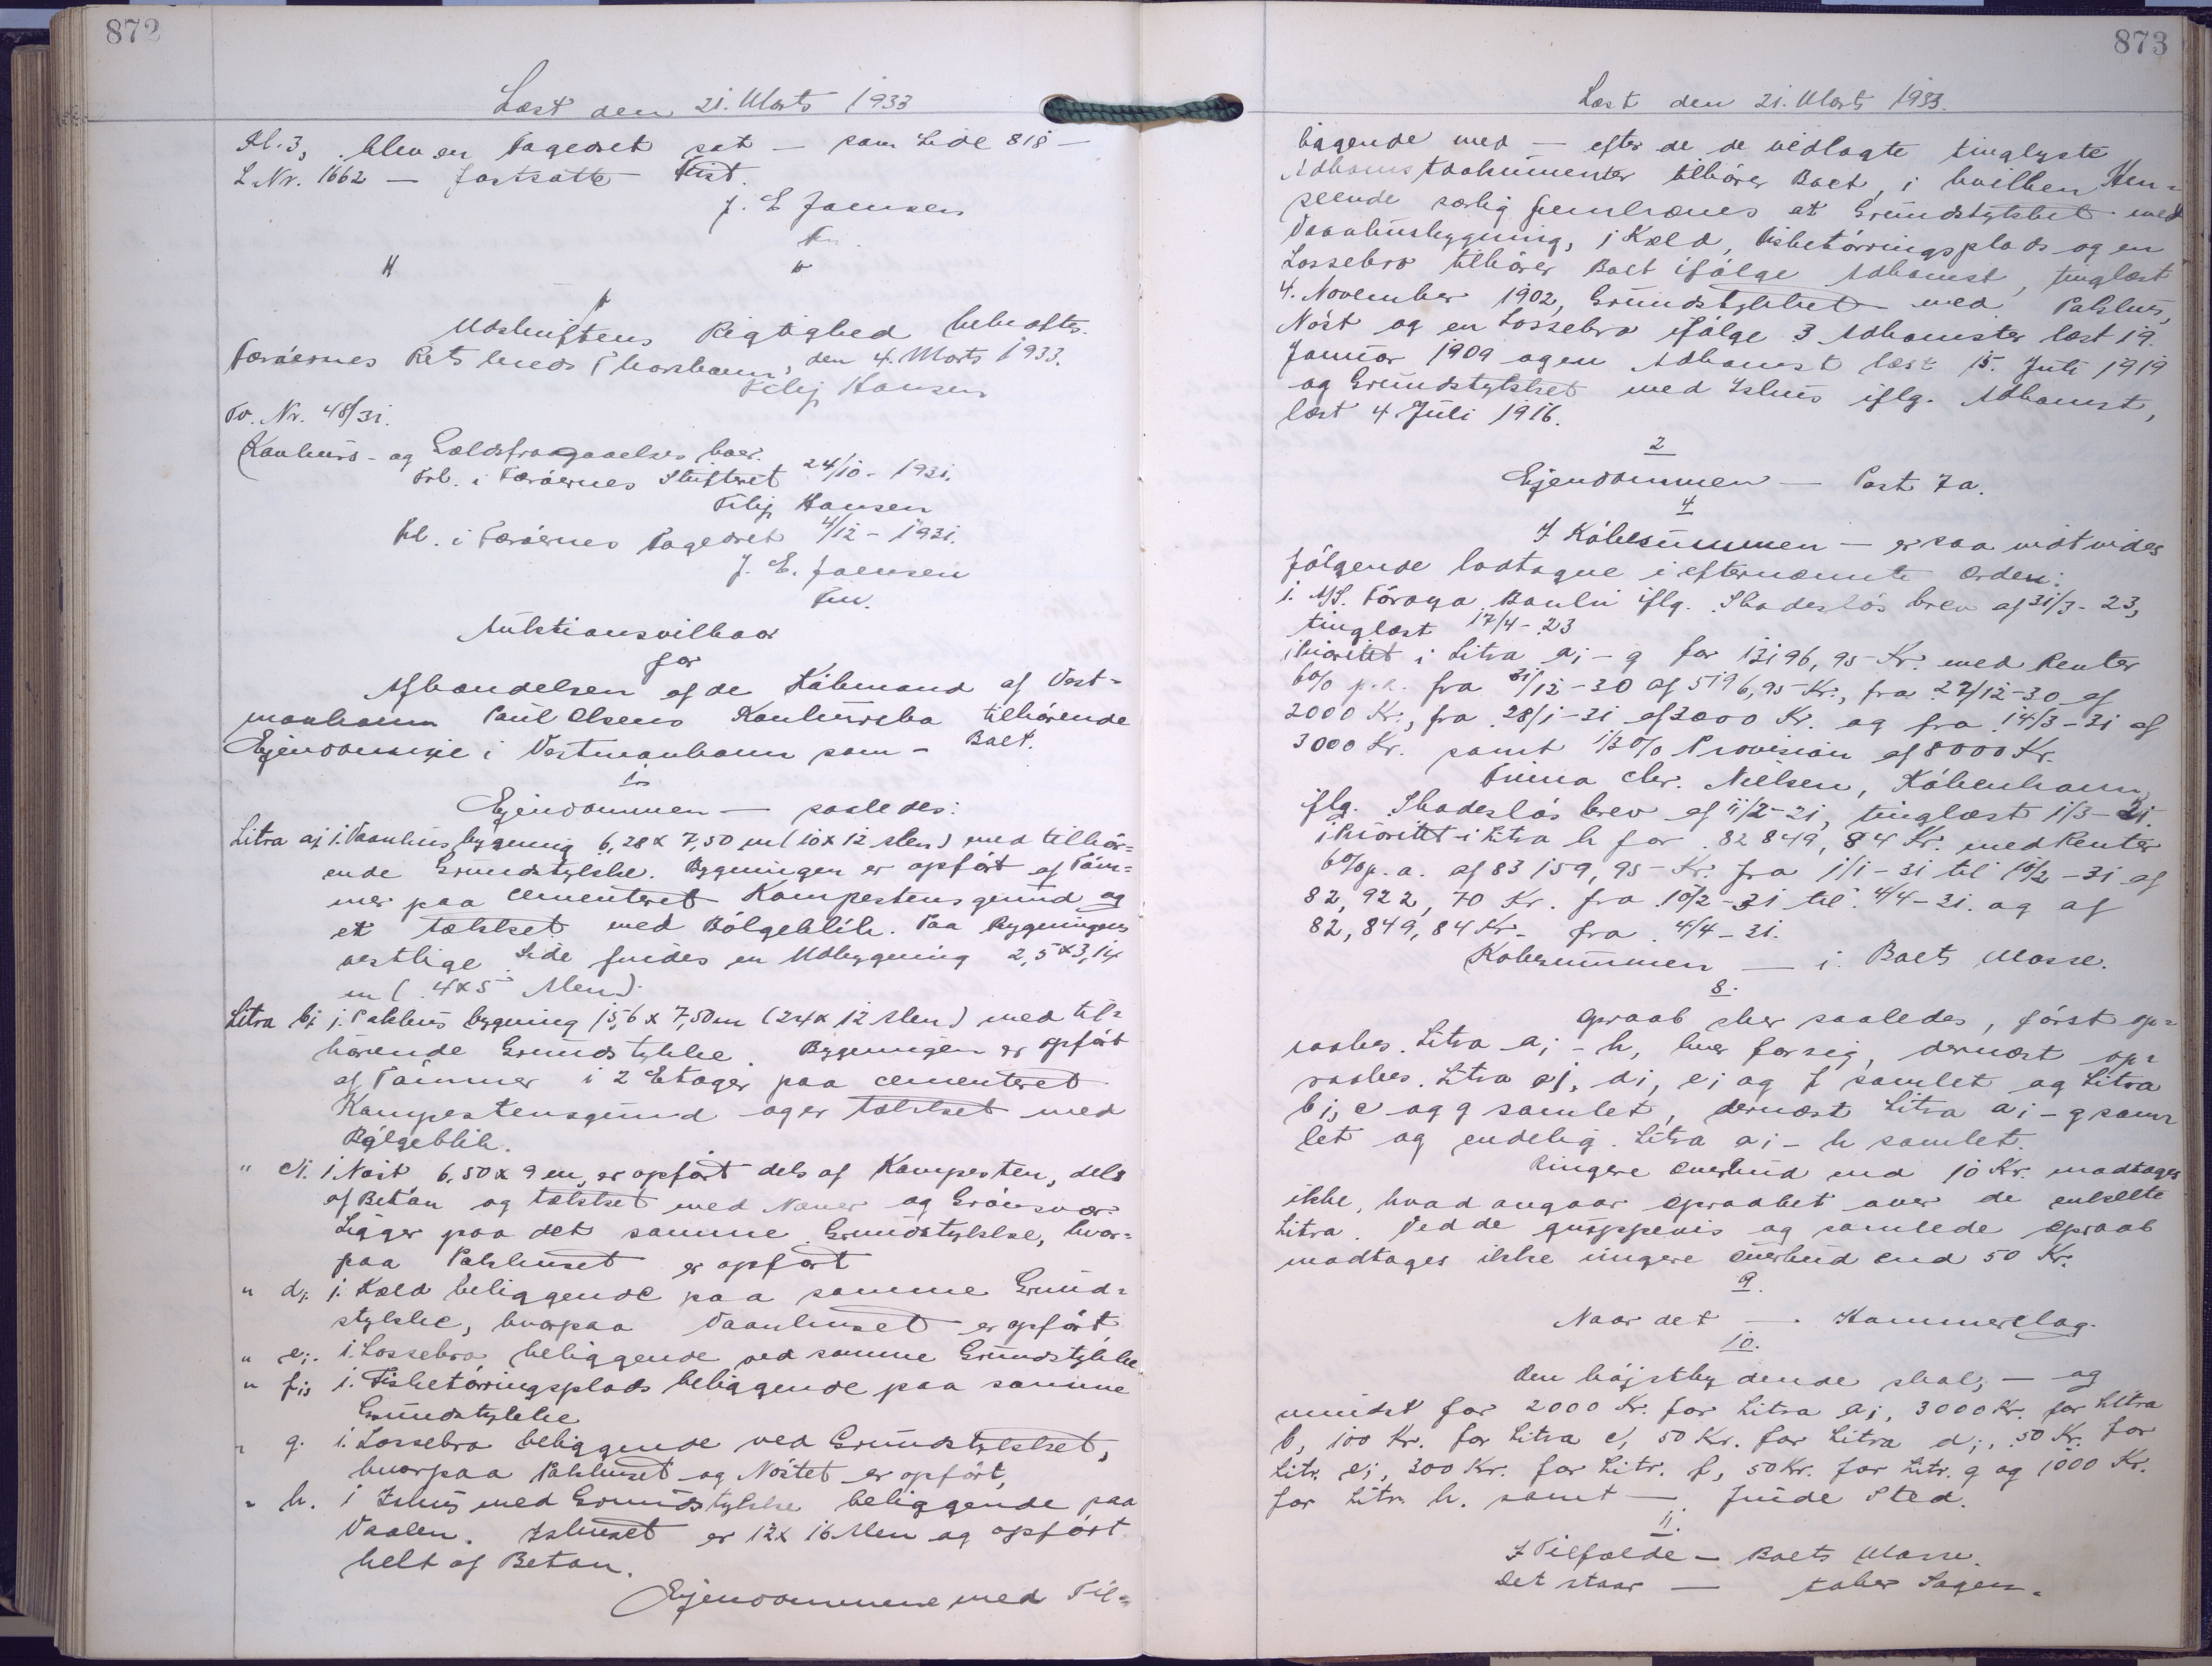 872
Læst den 21. Marts 1933
Kl. 3, blev en Fogedret sat — som Side 818 —
L. Nr. 1662 — fortsatte Frist.
J. E. Joensen
Fm.
Udskriftens Rigtighed bekræftes.
Færøernes Retskreds Thorshavn, den 4. Marts 1933.
Filip Hansen
Fo. Nr. 48/31.
Konkurs- og Gældsfragaaelses boer.
Frl. i Færøernes Skifteret 24/10 - 1931.
Filip Hansen
Frl. i Færøernes Fogedret 4/12 - 1931.
J. E. Joensen
Fm.
Auktionsvilkaar
for
Afhændelsen af de Købmand af Vest-
manhavn Paul Olsens Konkursbo tilhørende
Ejendomme i Vestmanhavn som — Boet.
1.
Ejendommen — saaledes:
Litra a; 1. Vaanhusbygning 6,28 x 7,50 m (10 x 12 Alen) med tilhør-
ende Grundstykke. Bygningen er opført af Tøm-
mer paa cementeret Kampestensgrund og
er tækket med Bølgeblik. Paa Bygningens
vestlige Side findes en Udbygning 2,5 x 3,14
m (4 x 5 Alen).
Litra b; 1. Pakhusbygning 15,6 x 7,50 m (24 x 12 Alen) med til-
hørende Grundstykke. Bygningen er opført
af Tømmer i 2 Etager paa cementeret
Kampestensgrund og er tækket med
Bølgeblik.
" c. 1 Nøst 6,50 x 9 m, er opført dels af Kampesten, dels
af Beton og tækket med Næver og Grønsvær.
Ligger paa det samme Grundstykke, hvor-
paa Pakhuset er opført
" d; 1. Kæld beliggende paa samme Grund-
stykke, hvorpaa Vaanhuset er opført
" e;. 1. Lossebro beliggende ved samme Grundstykke
" f; 1. Fisketørringsplads beliggende paa samme
Grundstykke
" g. 1. Lossebro beliggende ved Grundstykket,
hvorpaa Pakhuset og Nøstet er opført,
" h. 1 Ishus med Grundstykke beliggende paa
Vaalen. Ishuset er 12 x 16 Alen og opført
helt af Beton.
Ejendommene med Til-
873
Læst den 21. Marts 1933.
liggende med — efter de de vedlagte tinglyste
Adkomstdokumenter tilhører Boet, i hvilken Hen-
seende særlig fremhæves at Grundstykket med
Vaanhusbygning, 1 Kæld, Fisketørringsplads og en
Lossebro tilhører Boet ifølge Adkomst, tinglæst
4. November 1902, Grundstykket med Pakhus,
Nøst og en Lossebro ifølge 3 Adkomster læst 19.
Januar 1909 og en Adkomst læst 15. Juli 1919
og Grundstykket med Ishus iflg. Adkomst,
læst 4 Juli 1916.
2
Ejendommen — Post 7a.
4
I Købesummen — er saa vidt vides
følgende lodtagne i efternævnte Orden:
1. A/S. Føroya Banki iflg. Skadesløsbrev af 31/3 - 23,
tinglæst 17/4 - 23
1 Prioritet i Litra a; - g for 13196,95 Kr. med Renter
6% p. a. fra 31/12 - 30 af 5196,95 Kr., fra 27/12 - 30 af
2000 Kr., fra 28/1 - 31 af 3000 Kr. og fra 14/3 - 31 af
3000 Kr. samt 1/3% Provision af 8000 Kr.
Firma Chr. Nielsen, København,
iflg. Skadesløsbrev af 11/2 - 21, tinglæst 1/3 - 21.
1 Prioritet i Litra h for 82 849, 84 Kr. med Renter
6% p. a. af 83 159, 95 Kr. fra 1/1 - 31 til 10/2 - 31 af
82, 922, 70 Kr. fra 10/2 - 31 til 4/4 - 31. og af
82, 849, 84 Kr. fra 4/4 - 31.
Købesummen — i Boets Masse.
8.
Opraab sker saaledes, først op-
raabes Litra a; - h, hver for sig, dernæst op-
raabes Litra a;, d;, e; og f samlet og Litra
b;, c og g samlet, dernæst Litra a; - g sam-
let og endelig Litra a; - h samlet.
Ringere Overbud end 10 Kr. modtages
ikke, hvad angaar Opraabet over de enkelte
Litra. Ved de gruppevis og samlede Opraab
modtages ikke ringere Overbud end 50 Kr.
9.
Naar det — Hammerslag.
10.
Den højstbydende skal, — og
mindst for 2000 Kr. for Litra a;, 3000 Kr. for Litra
b, 100 Kr. for Litra c, 50 Kr. for Litra d;, 50 Kr. for
Litr. e;, 300 Kr. for Litr. f, 50 Kr. for Litr. g og 1000 Kr.
for Litr. h. samt — finde Sted.
11.
I Tilfælde — Boets Masse.
Det staar — taber Sagen.